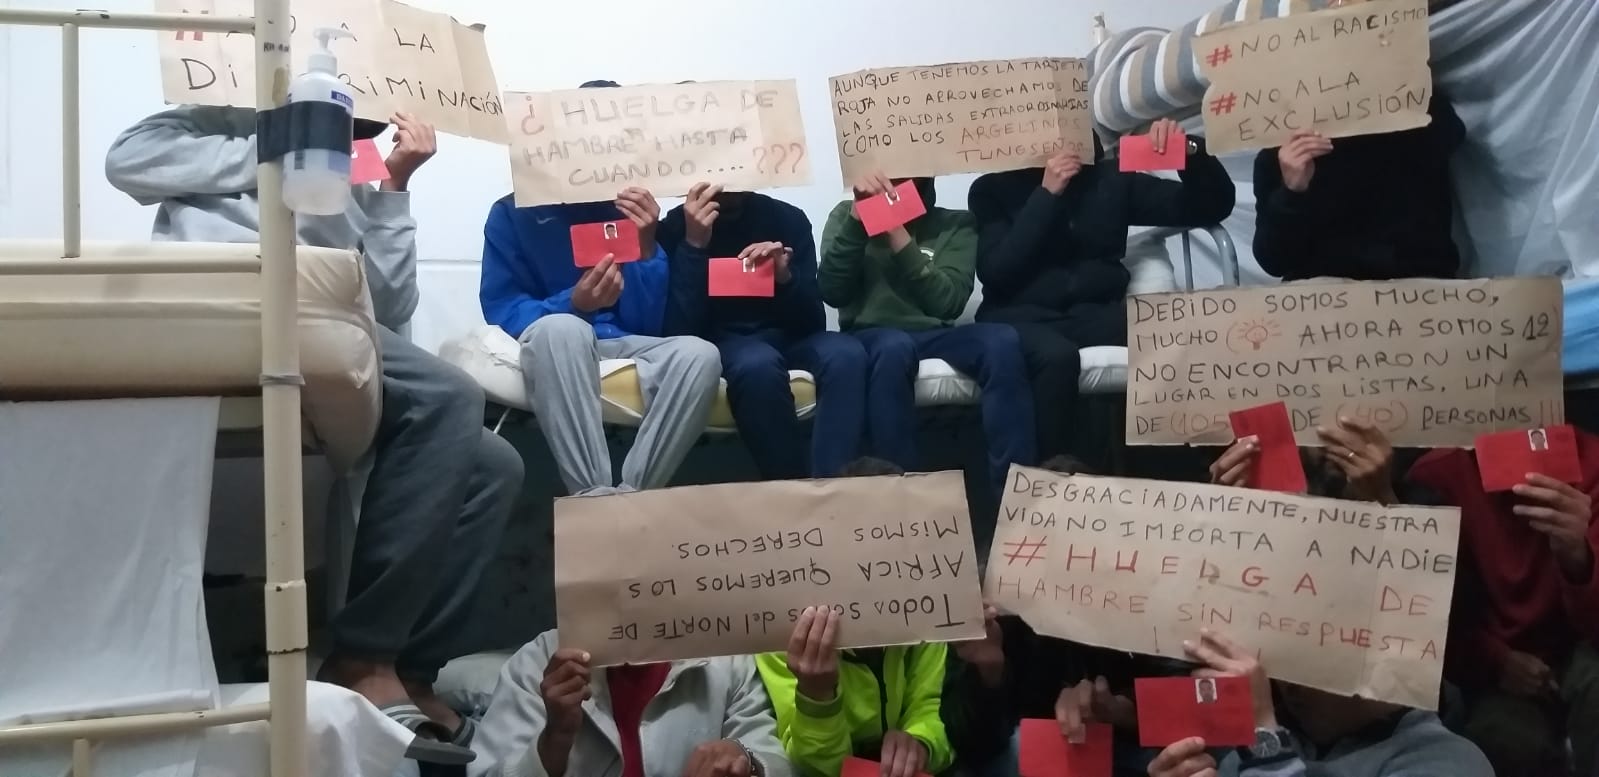 A LA
DI RIMINACIÓN
¿ HUELGA DE
HAMBRE HASTA
CUANDO....???
AUNQUE TENEMOS LA TARJETA
ROJA NO APROVECHAMOS DE
LAS SALIDAS EXTRAORDINARIAS
COMO LOS ARGELINOS
TUNGSEN
#NO AL RACISMO
#NO A LA
EXCLUSIÓN
DEBIDO SOMOS MUCHO,
MUCHO ( AHORA SOMOS 12)
NO ENCONTRARON UN
LUGAR EN DOS LISTAS, UNA
DE (105 DE (40) PERSONAS!!!
Todos del NORTE DE
AFRICA QUEREMOS LOS
MISMOS DERECHOS.
DESGRACIADAMENTE, NUESTRA
VIDA NO IMPORTA A NADIE
#HUELGA DE
HAMBRE SIN RESPUESTA
! !